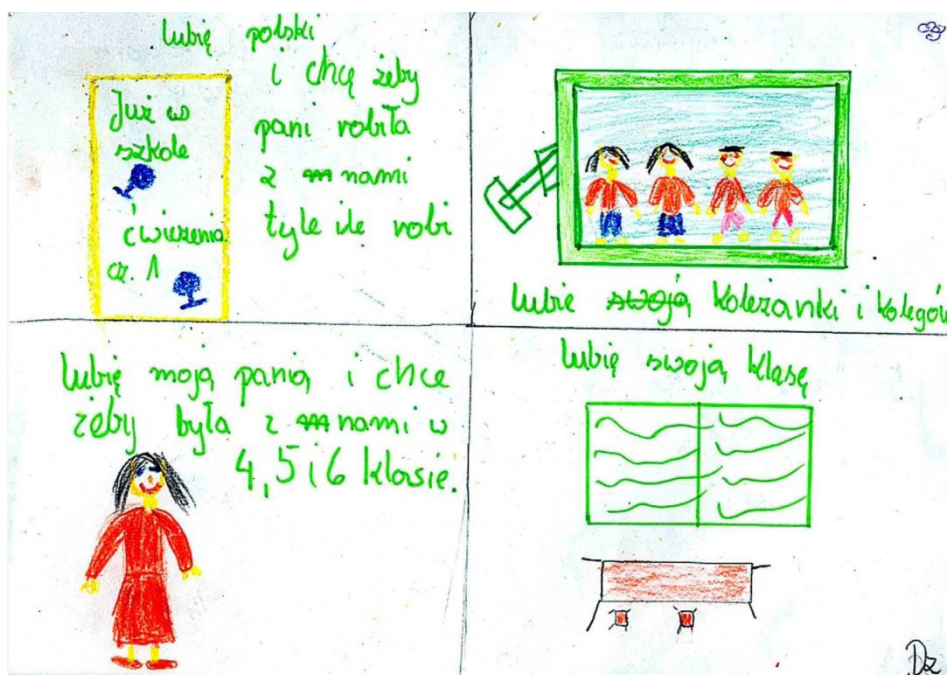 lubię polski
i chcę żeby
pani robiła
z m nami
tyle ile robi
Już w
szkole
ćwiczenia
cz. 1
lubie swoją koleżanki i kolegów
lubię moją panią i chce
żeby była z m nami w
4,5 i 6 klasie.
lubię swoją klasę
Dz